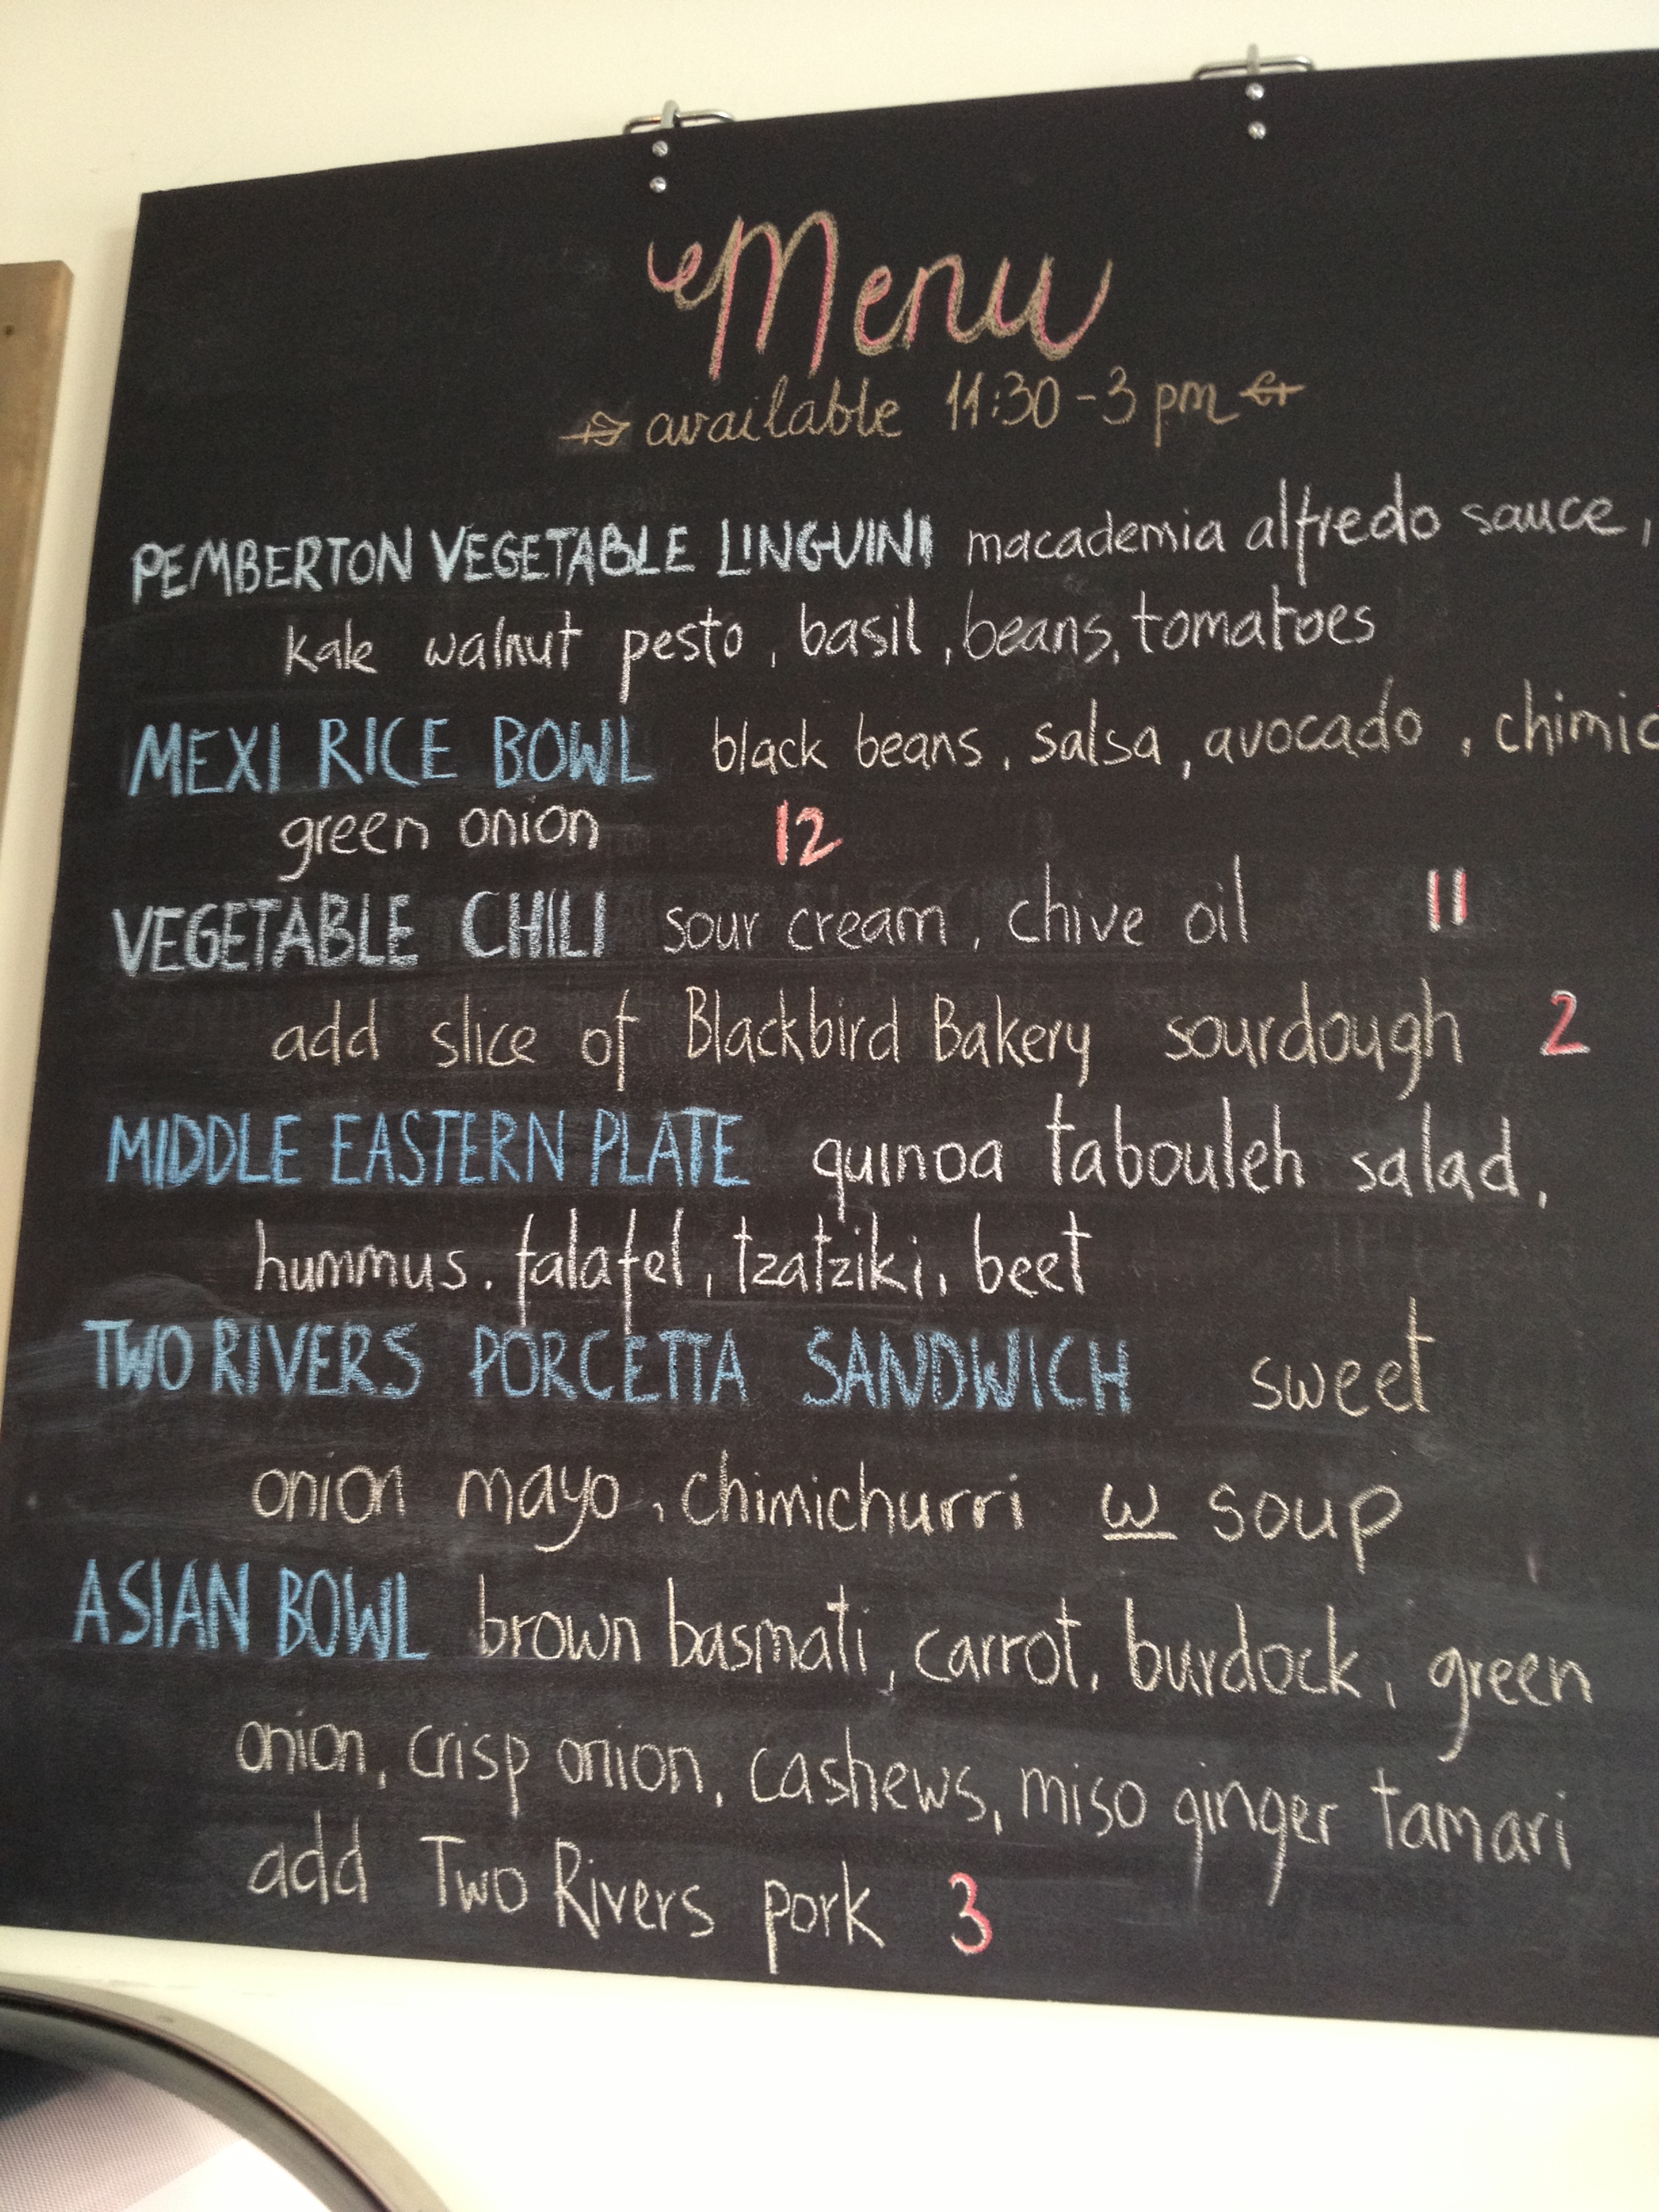 Menu
available 11:30-3pm
PEMBERTON VEGETABLE LINGUINI macademia alfredo sauce,
kale walnut pesto, basil, beans, tomatoes
MEXI RICE BOWL black beans, salsa, avocado, chimic
green onion 12
VEGETABLE CHILI sour cream, chive oil 11
add slice of Blackbird Bakery sourdough 2
MIDDLE EASTERN PLATE quinoa tabouleh salad,
hummus, falafel, tzatziki, beet
TWO RIVERS PORCETTA SANDWICH sweet
onion mayo, chimichurri w soup
ASIAN BOWL brown basmati, carrot, burdock, green
onion, crisp onion, cashews, miso ginger tamari
add Two Rivers pork 3